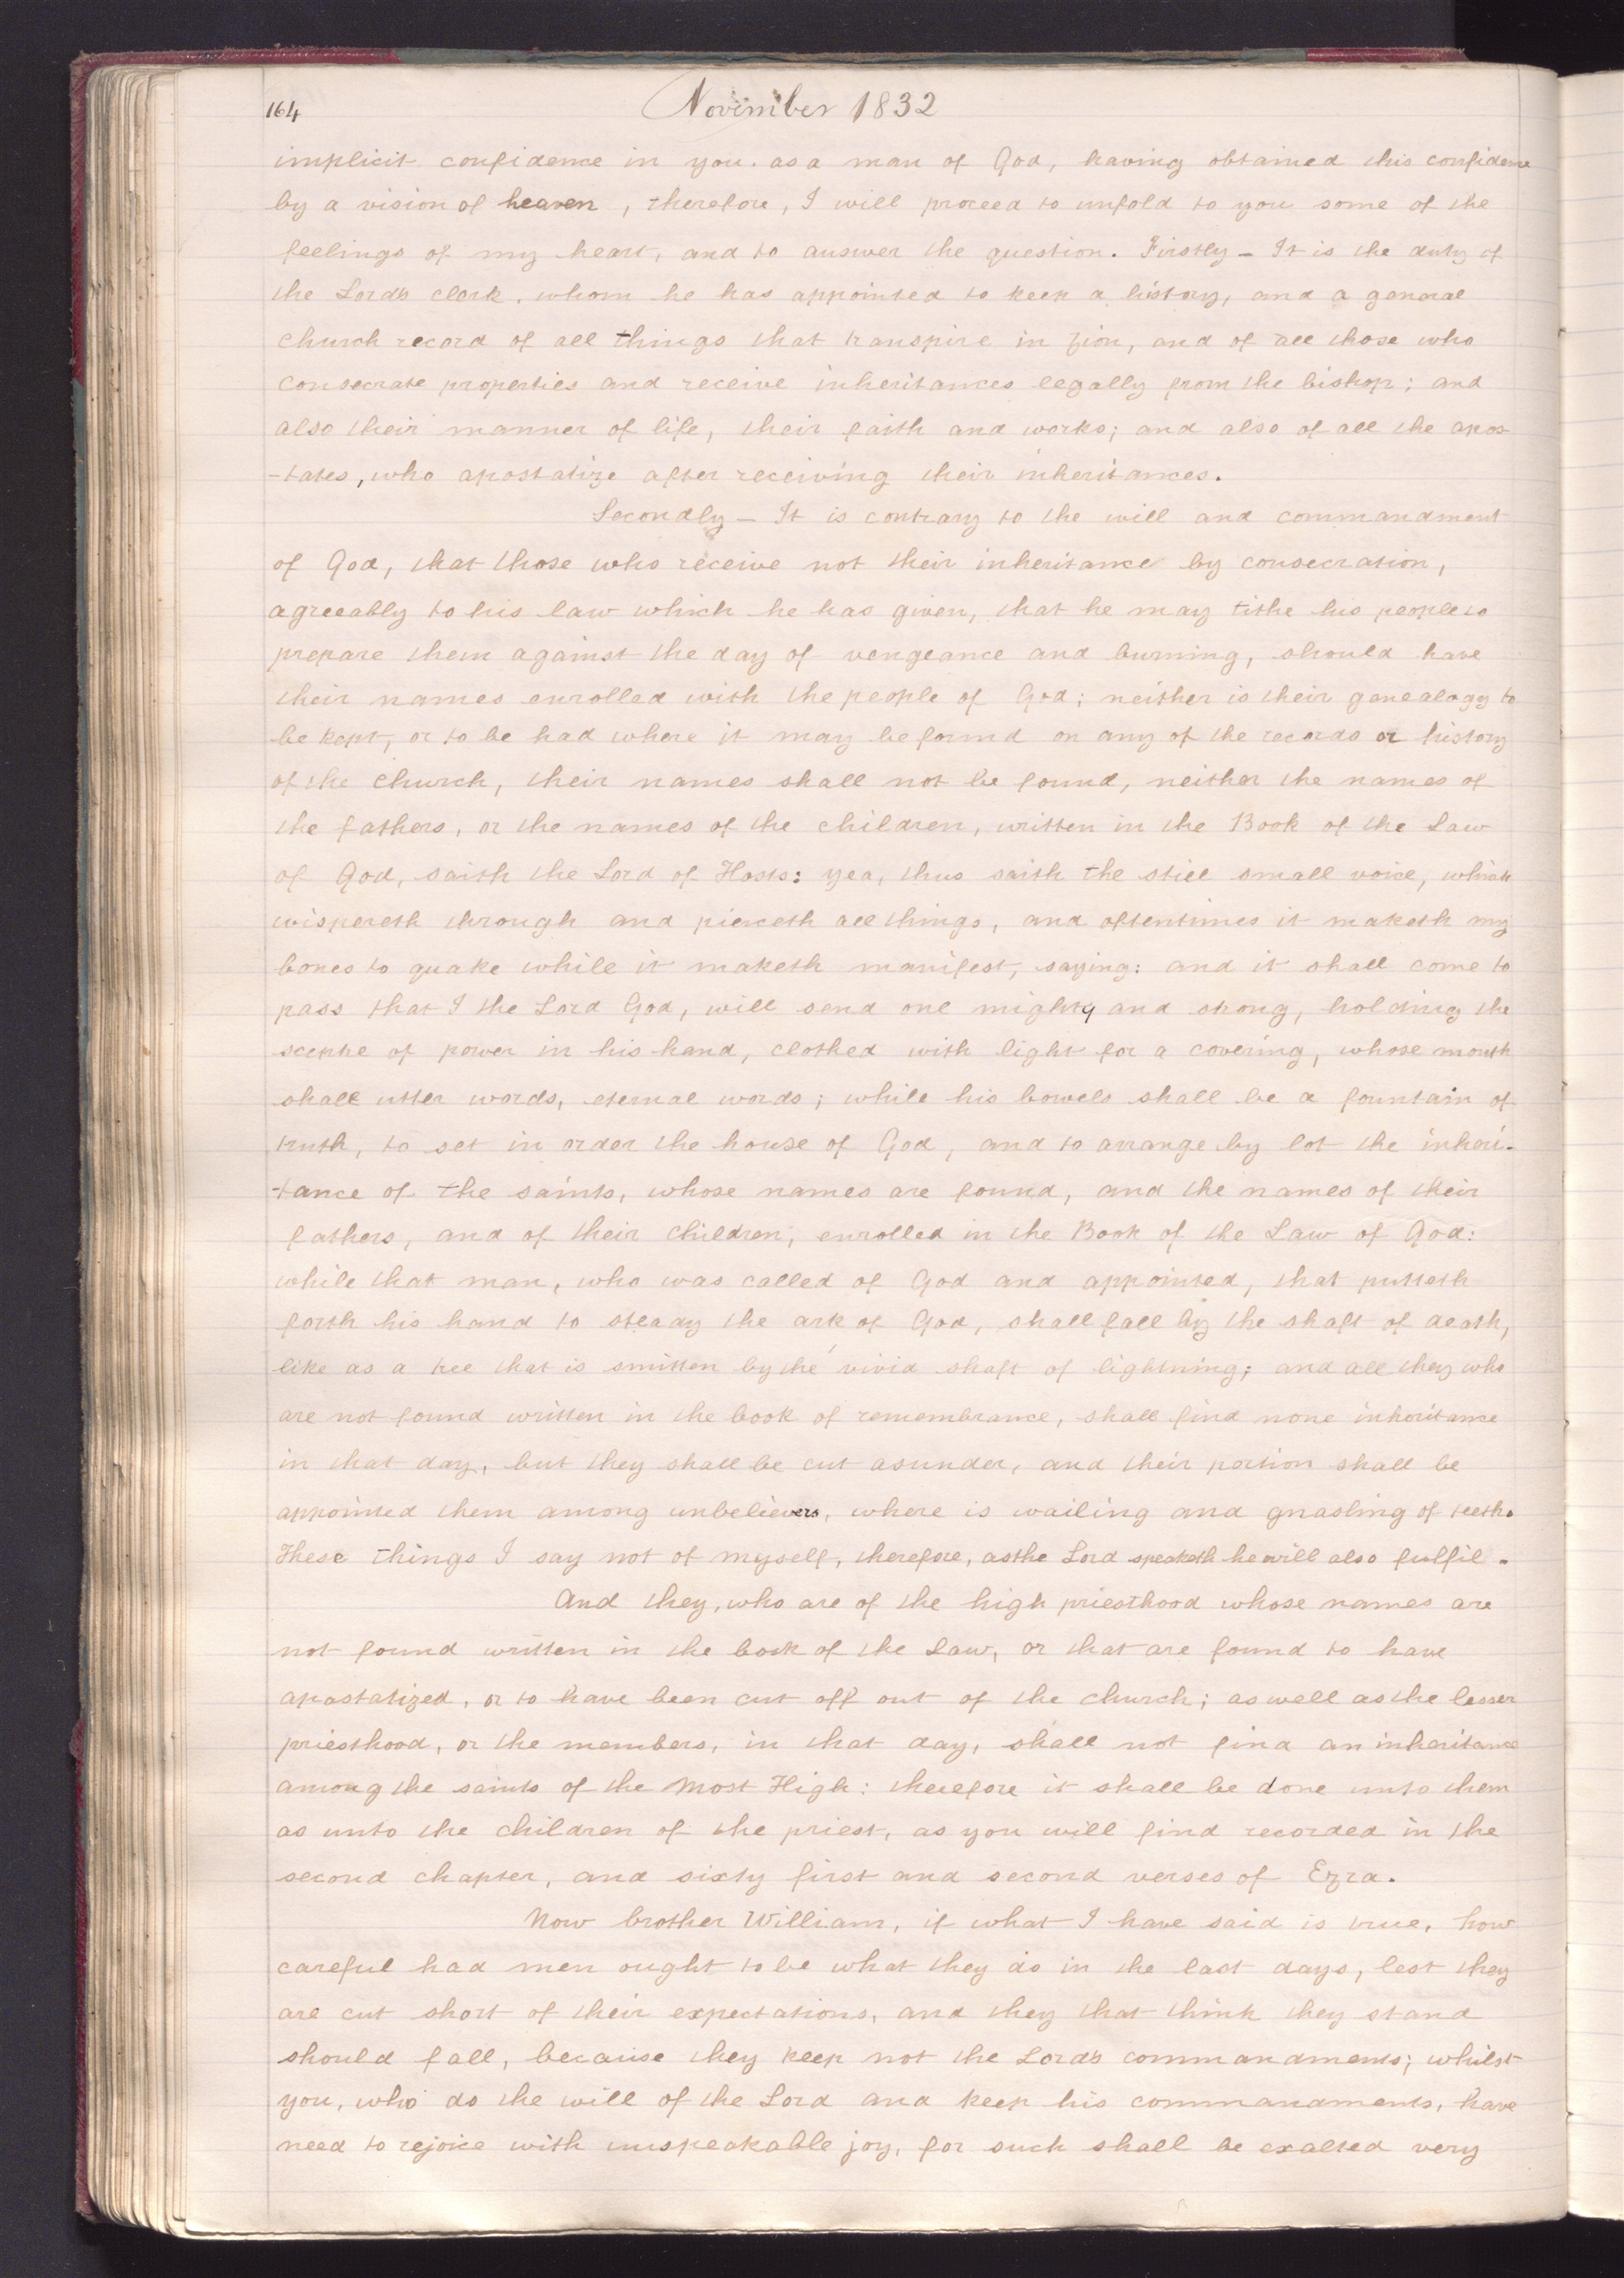 164
November 1832
implicit confidence in you. as a man of God, having obtained this confidence
by a vision of heaven, therefore, I will proceed to unfold to you some of the
feelings of my heart, and to answer the question. Firstly - It is the duty of
the Lord's clerk, whom he has appointed to keep a history, and a general
church record of all things that transpire in Zion, and of all those who
consecrate properties and receive inheritances legally from the bishop; and
also their manner of life, their faith and works; and also of all the apos
-tates, who apostatize after receiving their inheritances.
Secondly - It is contrary to the will and commandment
of God, that those who receive not their inheritance by consecration,
agreeably to his law which he has given, that he may tithe his people to
prepare them against the day of vengeance and burning, should have
their names enrolled with the people of God; neither is their genealogy to
be kept, or to be had where it may be found on any of the records or history
of the church, their names shall not be found, neither the names of
the fathers, or the names of the children, written in the Book of the Law
of God, saith the Lord of Hosts: yea, thus saith the still small voice, which
wispereth through and pierceth all things, and oftentimes it maketh my
bones to quake while it maketh manifest, saying: and it shall come to
pass that I the Lord God, will send one mighty and strong, holding the
sceptre of power in his hand, clothed with light for a covering, whose mouth
shall utter words, eternal words; while his bowels shall be a fountain of
truth, to set in order the house of God, and to arrange by lot the inheri-
tance of the saints, whose names are found, and the names of their
fathers, and of their children, enrolled in the Book of the Law of God:
while that man, who was called of God and appointed, that putteth
forth his hand to steady the ark of God, shall fall by the shaft of death,
like as a tree that is smitten by the vivid shaft of lightning; and all they who
are not found written in the book of remembrance, shall find none inheritance
in that day, but they shall be cut asunder, and their portion shall be
appointed them among unbelievers, where is wailing and gnashing of teeth.
These things I say not of myself, therefore, as the Lord speaketh he will also fulfil.
And they, who are of the high priesthood whose names are
not found written in the book of the Law, or that are found to have
apostatized, or to have been cut off out of the church; as well as the lesser
priesthood, or the members, in that day, shall not find an inheritance
among the saints of the Most High: therefore it shall be done unto them
as unto the children of the priest, as you will find recorded in the
second chapter, and sixty first and second verses of Ezra.
Now brother William, if what I have said is true, how
careful had men ought to be what they do in the last days, lest they
are cut short of their expectations, and they that think they stand
should fall, because they keep not the Lord's commandments; whilst
you, who do the will of the Lord and keep his commandments, have
need to rejoice with unspeakable joy, for such shall be exalted very